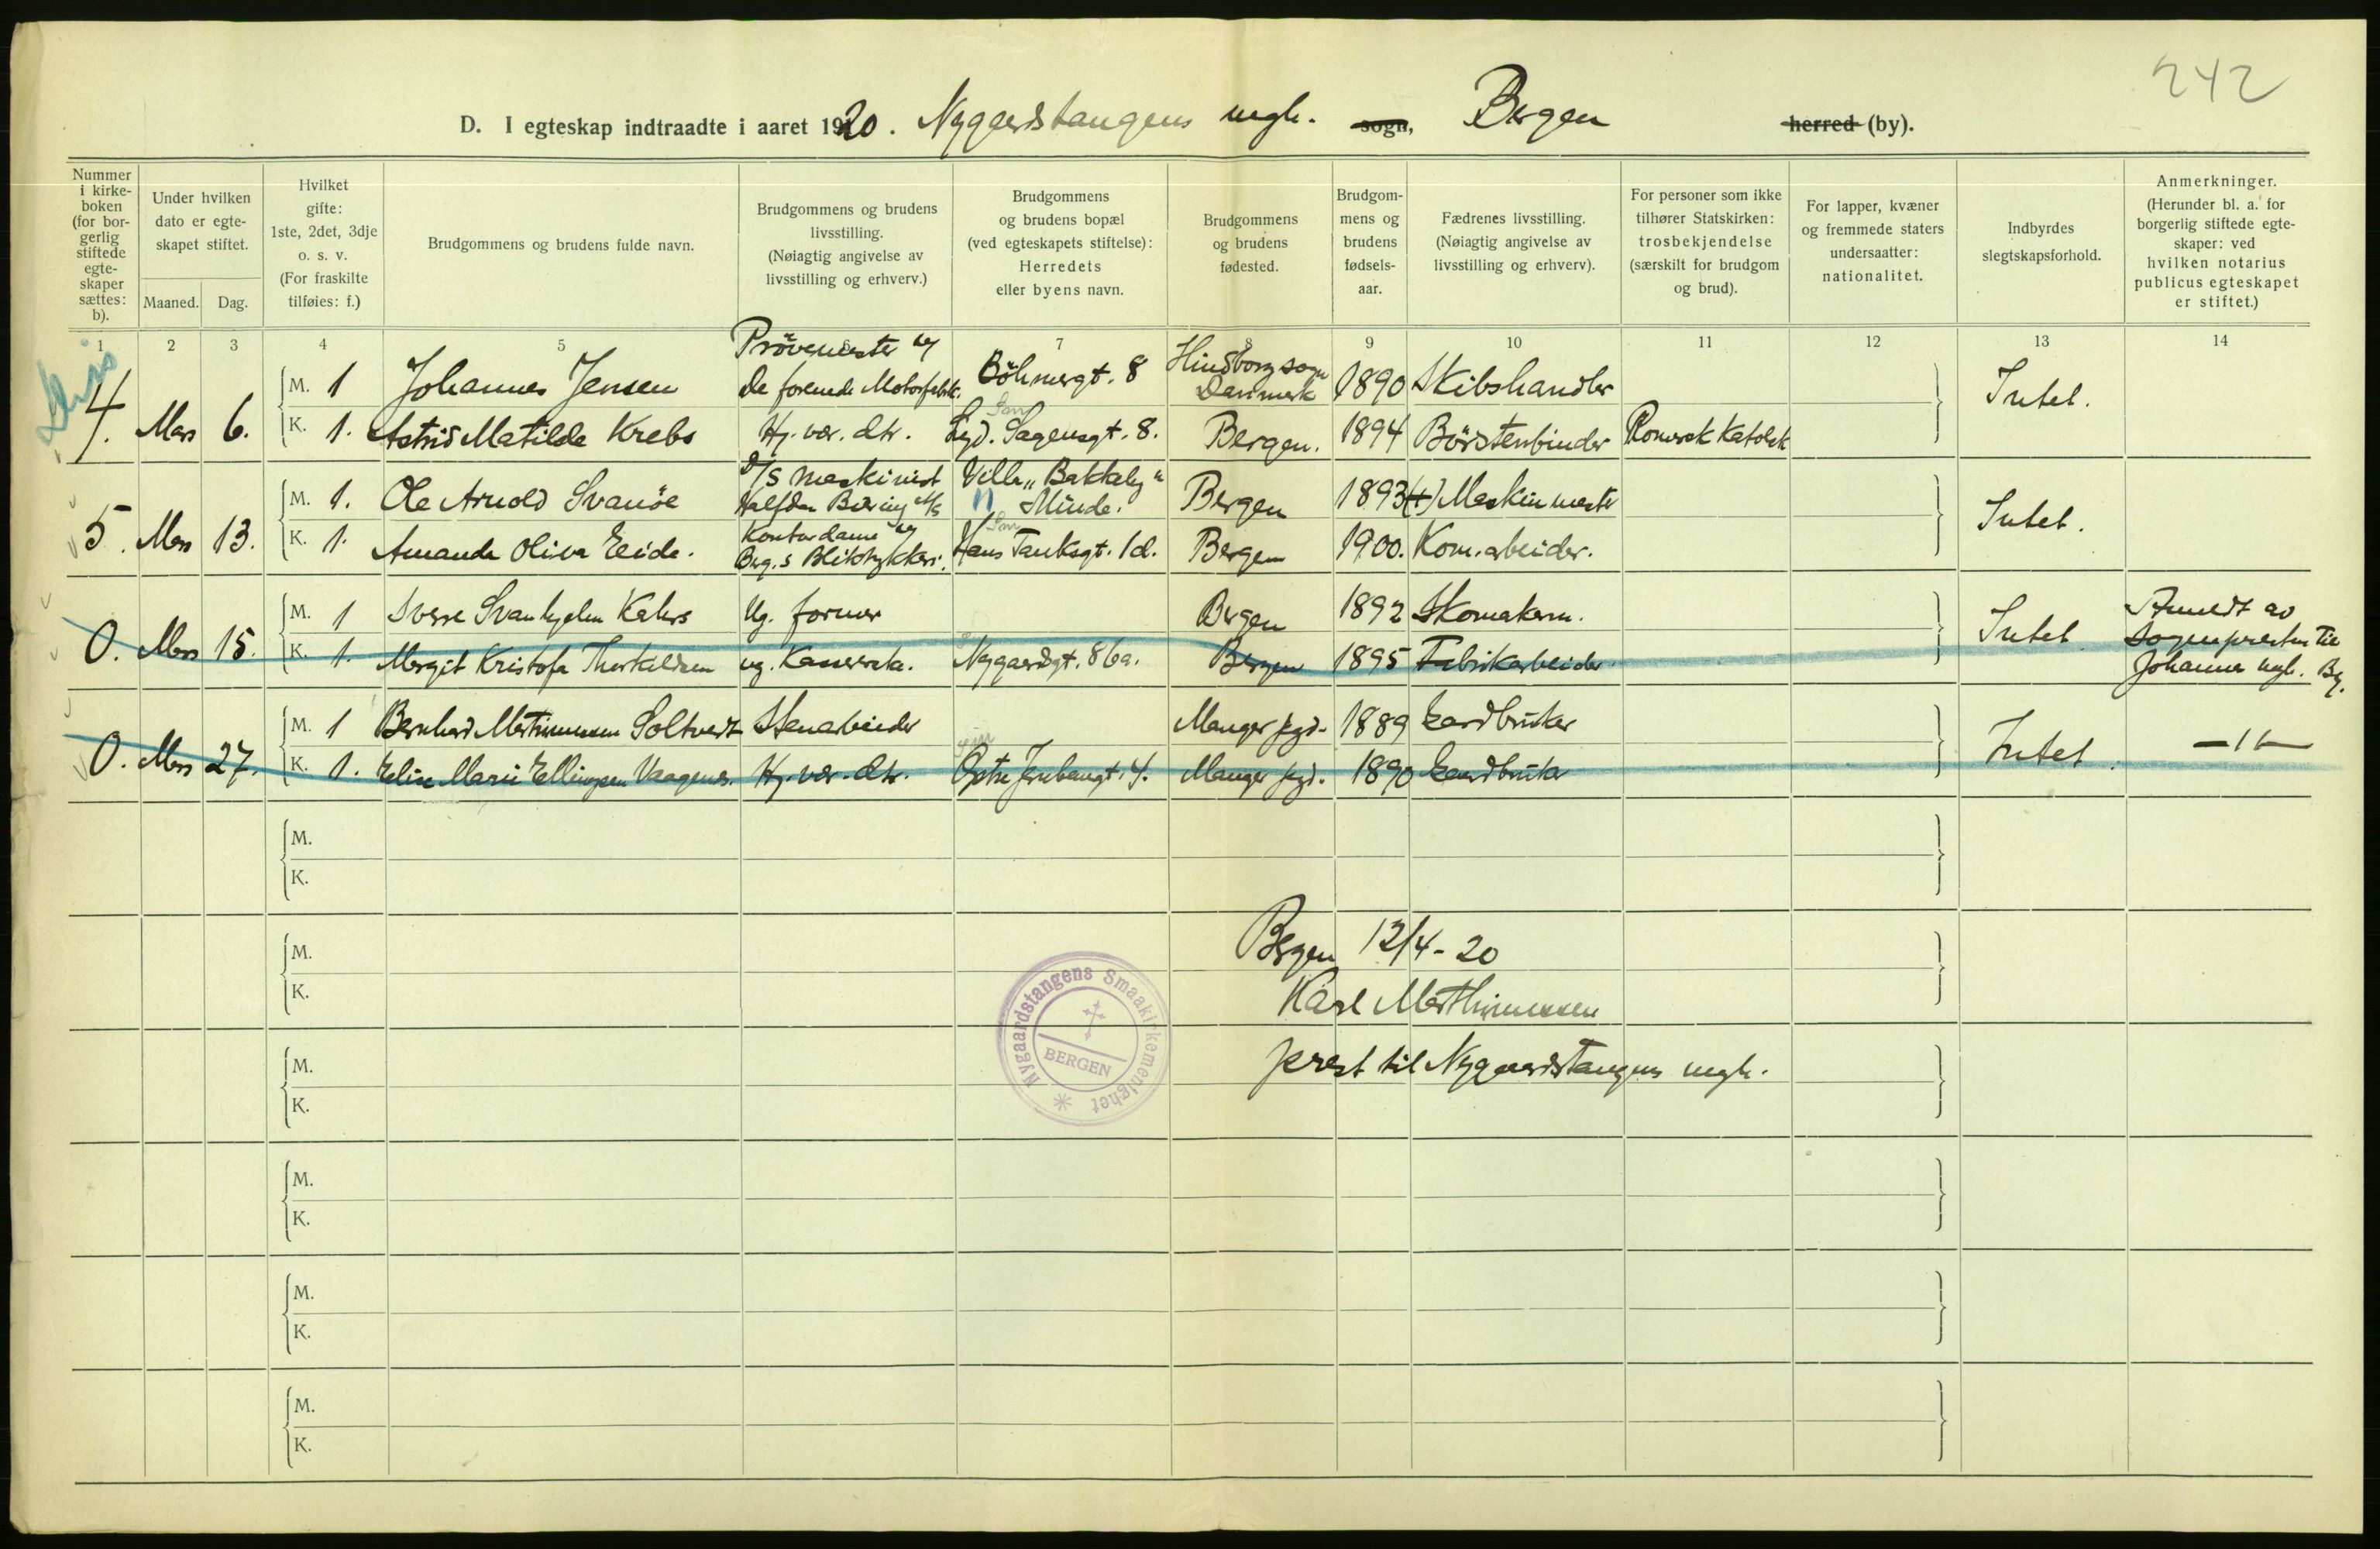 242
D. I egteskap indtraadte i aaret 1920. Nygaardstangens mgh. sogn, Bergen herred (by).
Nummer i kirke- boken (for bor- gerlig stiftede egte- skaper sættes: b).
Under hvilken dato er egte- skapet stiftet.
Maaned. Dag.
Hvilket gifte: 1ste, 2det, 3dje o. s. v. (For fraskilte tilføies: f.)
Brudgommens og brudens fulde navn.
Brudgommens og brudens livsstilling. (Nøiagtig angivelse av livsstilling og erhverv.)
Brudgommens og brudens bopæl (ved egteskapets stiftelse): Herredets eller byens navn.
Brudgommens og brudens fødested.
Brudgom- mens og brudens fødsels- aar.
Fædrenes livsstilling. (Nøiagtig angivelse av livsstilling og erhverv).
For personer som ikke tilhører Statskirken: trosbekjendelse (særskilt for brudgom og brud).
For lapper, kvæner og fremmede staters undersaatter: nationalitet.
Indbyrdes slegtskapsforhold.
Anmerkninger. (Herunder bl. a. for borgerlig stiftede egte- skaper: ved hvilken notarius publicus egteskapet er stiftet.)
1 2 3 4 5 6 7 8 9 10 11 12 13 14
4. Mars 6. M. 1 Johannes Jensen Prövemester ved De forenede Motorfabrik. Böhmergt. 8 Hindborg sogn Danmark 1890 Skibshandler Intet.
K. 1. Astrid Matilde Krebs Hj. vær. dtr. Lyd. Sagensgt. 8. Bergen. 1894 Börstenbinder Romersk Katolsk
5. Mars 13. M. 1. Ole Arnold Svanöe D/S maskinist Halfdan A/S Villa "Bakkely" Minde. Bergen 1893 (+) Maskinmester Intet.
K. 1. Amanda Oliva Eide. Kontordame ved Berg.s Bliktrykkeri. Hans Tanksgt. 1d. Bergen 1900. Kom. arbeider.
0. Mars 15. M. 1 Sverre Svanhjelm Kahrs Ug. former Bergen 1892 Skomakerm. Intet Anmeldt av Sognepresten til Johannes mgh. Bg.
K. 1. Margit Kristofa Thorkildsen ug. Nygaardsgt. 86a. Bergen 1895 Fabrikarbeider
0. Mars 27. M. 1 Bernhard Martinussen Soltvedt Stenarbeider Manger pgd. 1889 Gardbruker Intet. —"—
K. 1. Eline Marie Ellingsen Vaagenes. Hj. vær. dtr. Östre Jernbanegt. 4. Manger pgd. 1890 Gaardbruker
M.
K.
M.
K.
M.
K.
M.
K.
M.
K.
M.
K.
Bergen 12/4-20
Karl Marthinussen
prest til Nygaardstangens mgh.
Nygaardstangens Smaakirkemenighet
BERGEN